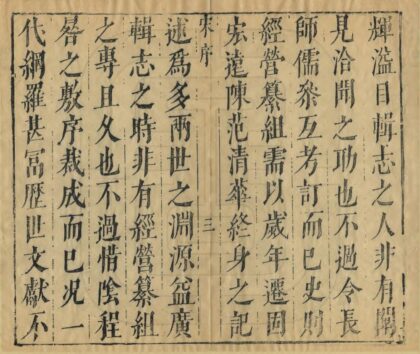 輝溢目輯志之人非有闢
見洽聞之功也不過令長
師儒叅互考訂而已史則
經營纂組需以歲年遷固
宏達陳范清華終身之記
宋序
三
述爲多兩世之淵源益廣
輯志之時非有經營纂組
之專且久也不過惜陰程
晷之敷序裁成而已况一
代綱羅甚冨歴世文獻不